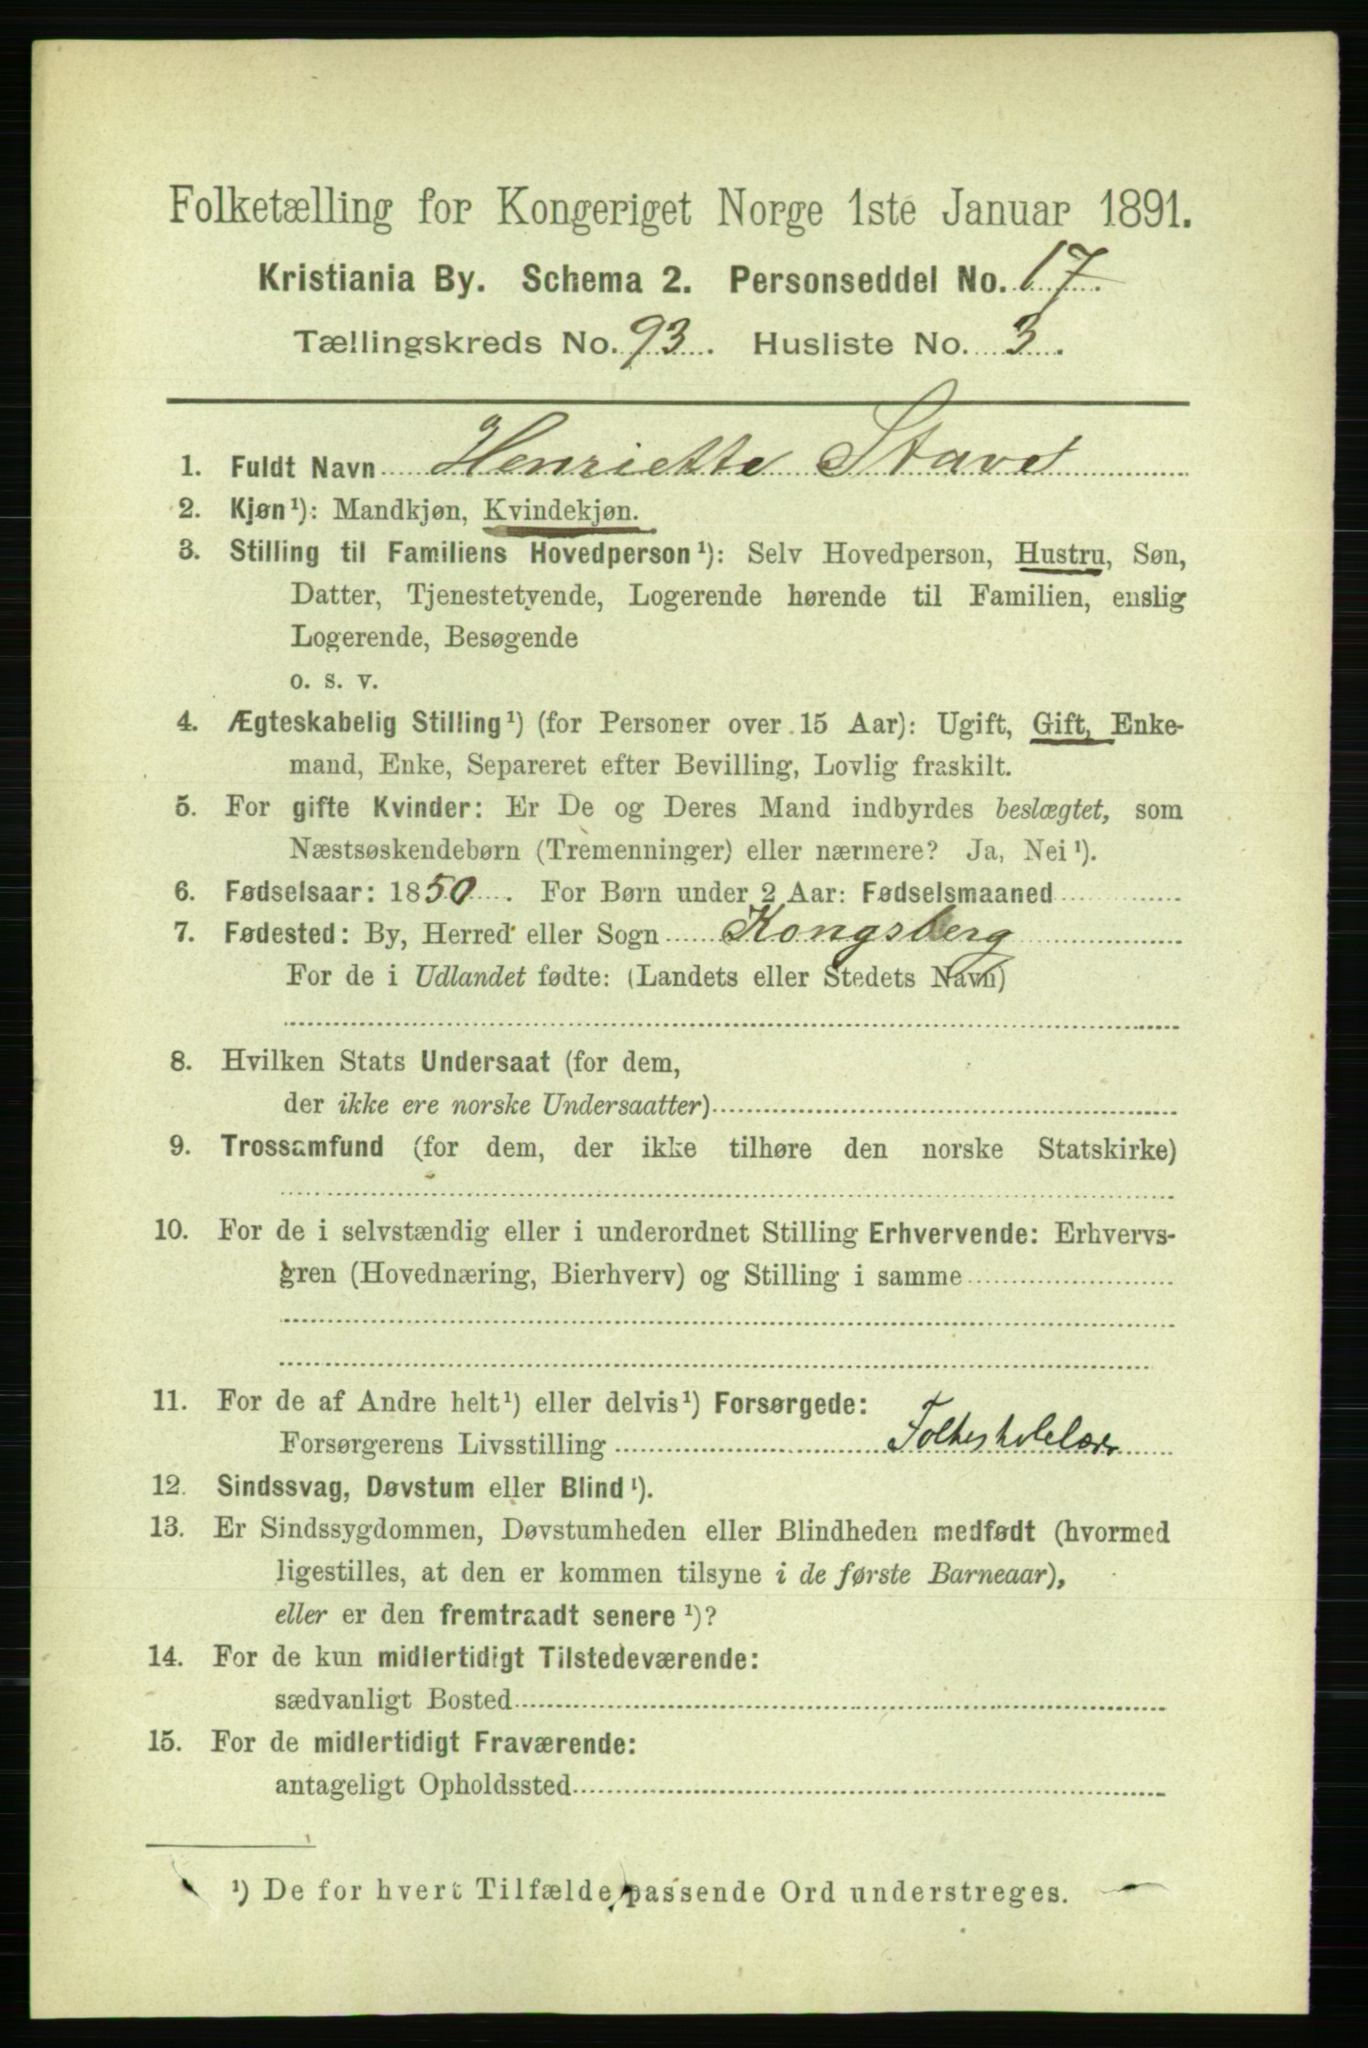 Folketælling for Kongeriget Norge 1ste Januar 1891.
Kristiania By. Schema 2. Personseddel No. 17.
Tællingskreds No. 93. Husliste No. 3.
1. Fuldt Navn Henriette Stavet
2. Kjøn¹): Mandkjøn, Kvindekjøn.
3. Stilling til Familiens Hovedperson¹): Selv Hovedperson, Hustru, Søn,
Datter, Tjenestetyende, Logerende hørende til Familien, enslig
Logerende, Besøgende
o. s. v.
4. Ægteskabelig Stilling¹) (for Personer over 15 Aar): Ugift, Gift, Enke-
mand, Enke, Separeret efter Bevilling, Lovlig fraskilt.
5. For gifte Kvinder: Er De og Deres Mand indbyrdes beslægtet, som
Næstsøskendebørn (Tremenninger) eller nærmere? Ja, Nei¹).
6. Fødselsaar: 1850. For Børn under 2 Aar: Fødselsmaaned
7. Fødested: By, Herred eller Sogn Kongsberg
For de i Udlandet fødte: (Landets eller Stedets Navn)
8. Hvilken Stats Undersaat (for dem,
der ikke ere norske Undersaatter)
9. Trossamfund (for dem, der ikke tilhøre den norske Statskirke)
10. For de i selvstændig eller i underordnet Stilling Erhvervende: Erhvervs-
gren (Hovednæring, Bierhverv) og Stilling i samme
11. For de af Andre helt¹) eller delvis¹) Forsørgede:
Forsørgerens Livsstilling Folkeskolelærer
12. Sindssvag, Døvstum eller Blind¹).
13. Er Sindssygdommen, Døvstumheden eller Blindheden medfødt (hvormed
ligestilles, at den er kommen tilsyne i de første Barneaar),
eller er den fremtraadt senere¹)?
14. For de kun midlertidigt Tilstedeværende:
sædvanligt Bosted
15. For de midlertidigt Fraværende:
antageligt Opholdssted
¹) De for hvert Tilfælde passende Ord understreges.